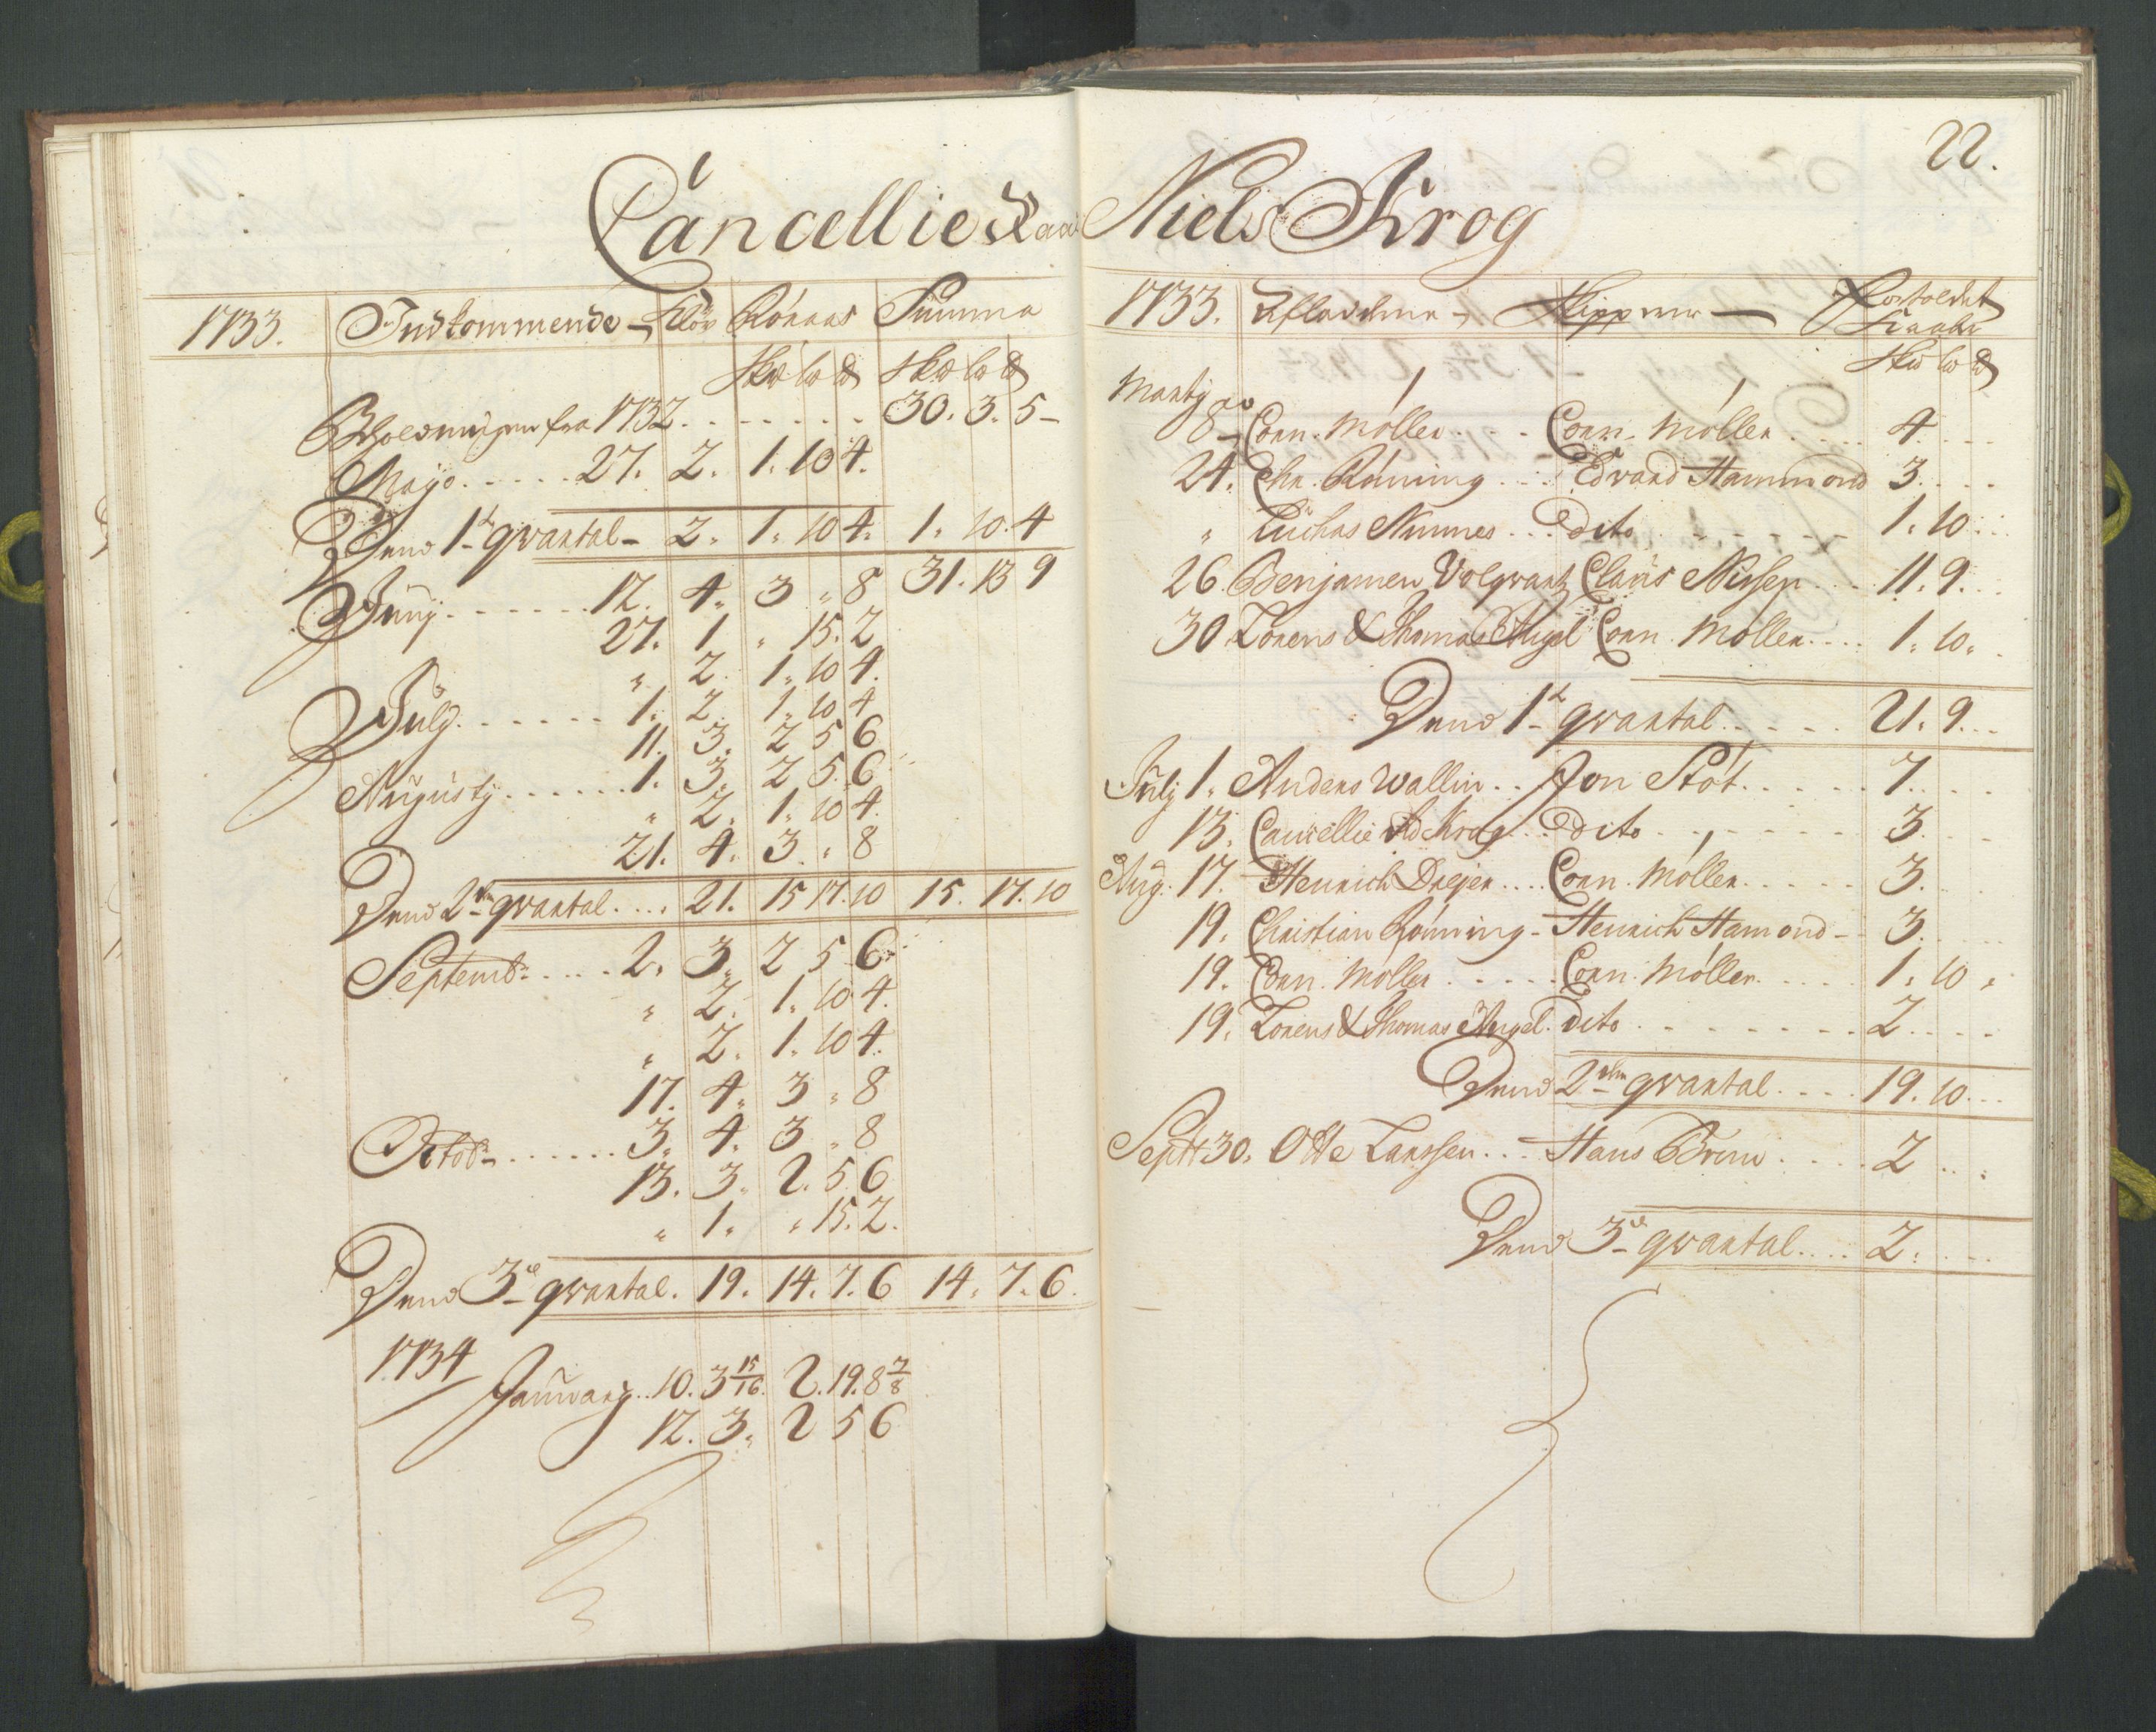 22.
Cancellie Raad Niels Krog
1733. Indkommende Slöv Róraas Summa
Sk℔ l℔ ℔ Sk℔ l℔ ℔
Beholdningen fra 1732. . . . . . . 30. 3. 5
Mayo. . . . . 27. 2. 1. 10 4.
Dend 1t qvartal 2. 1. 10 4. 1. 10. 4
31. 13 9
Junij . . . . . . 12. 4. 3 " 8
27. 1 " 15. 2
" 2. 1. 10 4.
July. . . . . . . 1. 2. 1. 10 4
11. 3. 2 5 6
Augusty . . . . . . 1. 3. 2 5. 6
" 2. 1. 10 4.
21. 4. 3. " 8
Dend 2den qvartal. . . . 21. 15 17. 10 15. 17. 10
Septemb: . . . . 2. 3. 2 5 6
" 2. 1. 10 4.
" 2. 1. 10 4.
17. 4. 3 " 8
Octob: . . . . . . 3. 4. 3 " 8
13. 3. 2. 5. 6
" 1. " 15. 2.
Dend 3e qvartal. 19. 14. 7. 6 14. 7. 6.
1734
Januarij . . 10. 3 15/16. 2. 19. 8 7/8
12. 3. 2 5 6
1733. Afladere Skippere
Sk℔ l℔ ℔
Martij 8 Corn. Móller . . . Corn. Móller . . . . 4. . . .
24. Chr. Róning . . . Edvard Hammond 3. . . .
" Luchas Nunnes . . . Dito . . . . . . 1. 10 . . .
26. Benjamen Volqvartz Claus Nissen . . . . 11. 9. . .
30. Lorens & Thomas Angel Corn. Móller. . . . 1. 10. .
Dend 1t qvartal . . . . . 21. 9. . .
Julij 1. Anders Wallin . . Jon Stót. . . . . 7. . . .
13. Cancellie Rd Krog . . Dito . . . . . . . 3. . . .
Aug. 17. Henrich Dreyer . . . . Corn. Móller. . . . . 3. . . .
19. Christian Róning Henrich Hamond 3. . . .
19. Corn. Móller . . . . . Corn. Móller. . . . . 1. 10 .
19. Lorens & Thomas Angel. Dito . . . . . . . . 2 . . . .
Dend 2den qvartal. . . . 19. 10. . .
Septr 30. Otte Larssen . . . Hans Brun . . . . 2 . . .
Dend 3e qvartal . . . . 2. . . .